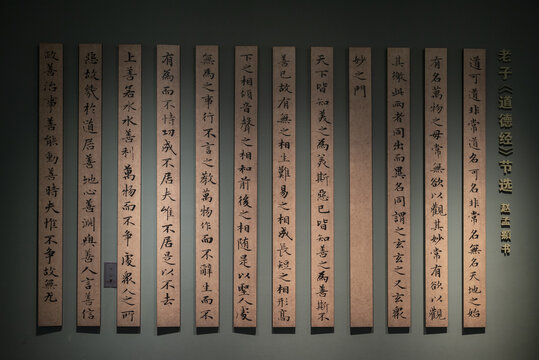 老子《道德经》节选 赵孟頫书
道可道非常道名可名非常名無名天地之始
有名萬物之母常無欲以觀其妙常有欲以觀
其徼此兩者同出而異名同謂之玄玄之又玄衆
妙之門
天下皆知美之為美斯惡已皆知善之為善斯不
善已故有無之相生難易之相成長短之相形高
下之相傾音聲之相和前後之相隨是以聖人處
無為之事行不言之教萬物作而不辭生而不
有為而不恃功成不居夫惟不居是以不去
上善若水水善利萬物而不爭處衆人之所
惡故幾於道居善地心善淵與善人言善信
政善治事善能動善時夫惟不爭故無尤